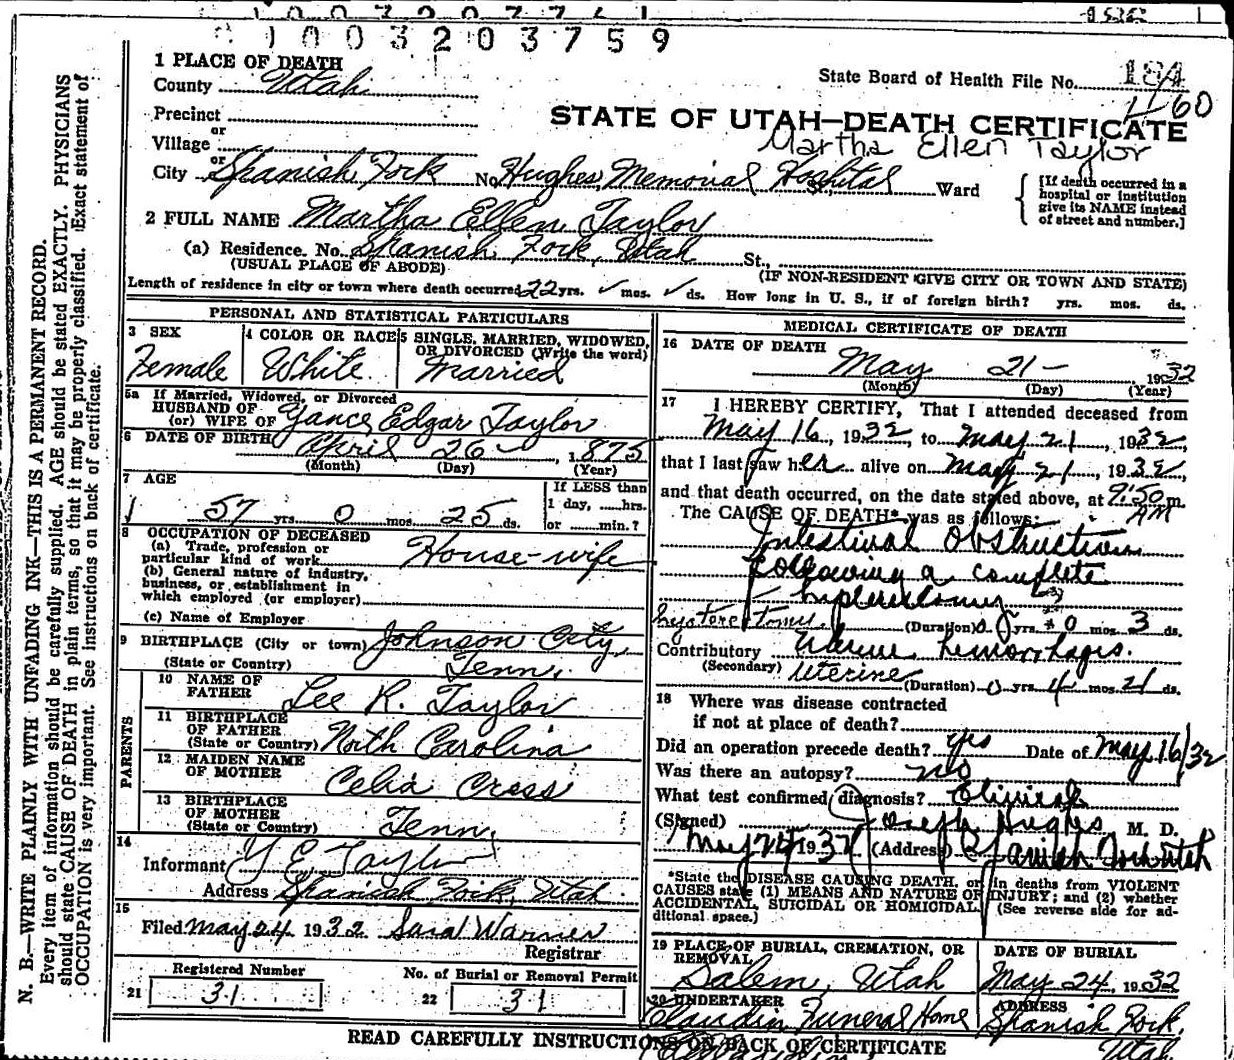 1003203759
1 PLACE OF DEATH
County Utah
State Board of Health File No. 184
1-60
Precinct
or
Village
STATE OF UTAH—DEATH CERTIFICATE
Martha Ellen Taylor
or
City Spanish Fork No Hughes Memorial Hospital St., Ward
[If death occurred in a hospital or institution give its NAME instead of street and number.]
2 FULL NAME Martha Ellen Taylor
(a) Residence. No. Spanish Fork, Utah St.,
(USUAL PLACE OF ABODE) (IF NON-RESIDENT GIVE CITY OR TOWN AND STATE)
Length of residence in city or town where death occurred 22 yrs. ✓ mos. ✓ ds. How long in U. S., if of foreign birth? yrs. mos. ds.
PERSONAL AND STATISTICAL PARTICULARS
3 SEX
Female
4 COLOR OR RACE
White
5 SINGLE, MARRIED, WIDOWED,
OR DIVORCED (Write the word)
Married
5a If Married, Widowed, or Divorced
HUSBAND OF
(or) WIFE OF Yance Edgar Taylor
6 DATE OF BIRTH April 26 - , 1875
(Month) (Day) (Year)
7 AGE
57 yrs. 0 mos. 25 ds.
If LESS than
1 day, ......hrs.
or ......min.?
8 OCCUPATION OF DECEASED
(a) Trade, profession or
particular kind of work House-wife
(b) General nature of industry,
business, or establishment in
which employed (or employer)
(c) Name of Employer
9 BIRTHPLACE (City or town) Johnson City,
(State or Country) Tenn.
PARENTS
10 NAME OF
FATHER Lee R. Taylor
11 BIRTHPLACE
OF FATHER
(State or Country) North Carolina
12 MAIDEN NAME
OF MOTHER Celia Cross
13 BIRTHPLACE
OF MOTHER
(State or Country) Tenn.
14
Informant Y. E. Taylor
Address Spanish Fork, Utah
15
Filed May 24 1932 Warner
Registrar
Registered Number
21 31
No. of Burial or Removal Permit
22 31
MEDICAL CERTIFICATE OF DEATH
16 DATE OF DEATH
May 21 - 1932
(Month) (Day) (Year)
17 I HEREBY CERTIFY, That I attended deceased from
May 16, 1932, to May 21, 1932
that I last saw her alive on May 21, 1932
and that death occurred, on the date stated above, at 9:50 m.
AM
The CAUSE OF DEATH* was as follows:
Intestinal Obstruction
following a complete
hysterectomy. (Duration) 0 yrs. 0 mos. 3 ds.
Contributory Uterine hemorrhages.
(Secondary) Uterine (Duration) 0 yrs. 4 mos. 21 ds.
18 Where was disease contracted
if not at place of death?
Did an operation precede death? yes Date of May 16/32
Was there an autopsy? no
What test confirmed diagnosis? Clinical
(Signed) Joseph Hughes M. D.
May 24 1932 (Address) Spanish Fork Utah
*State the DISEASE CAUSING DEATH, or in deaths from VIOLENT
CAUSES state (1) MEANS AND NATURE OF INJURY; and (2) whether
ACCIDENTAL, SUICIDAL OR HOMICIDAL. (See reverse side for ad-
ditional space.)
19 PLACE OF BURIAL, CREMATION, OR
REMOVAL
Salem, Utah
DATE OF BURIAL
May 24, 1932
20 UNDERTAKER
Claudin Funeral Home
ADDRESS
Spanish Fork,
Utah
READ CAREFULLY INSTRUCTIONS ON BACK OF CERTIFICATE
N. B.—WRITE PLAINLY WITH UNFADING INK—THIS IS A PERMANENT RECORD.
Every item of information should be carefully supplied. AGE should be stated EXACTLY. PHYSICIANS
should state CAUSE OF DEATH in plain terms, so that it may be properly classified. Exact statement of
OCCUPATION is very important. See instructions on back of certificate.